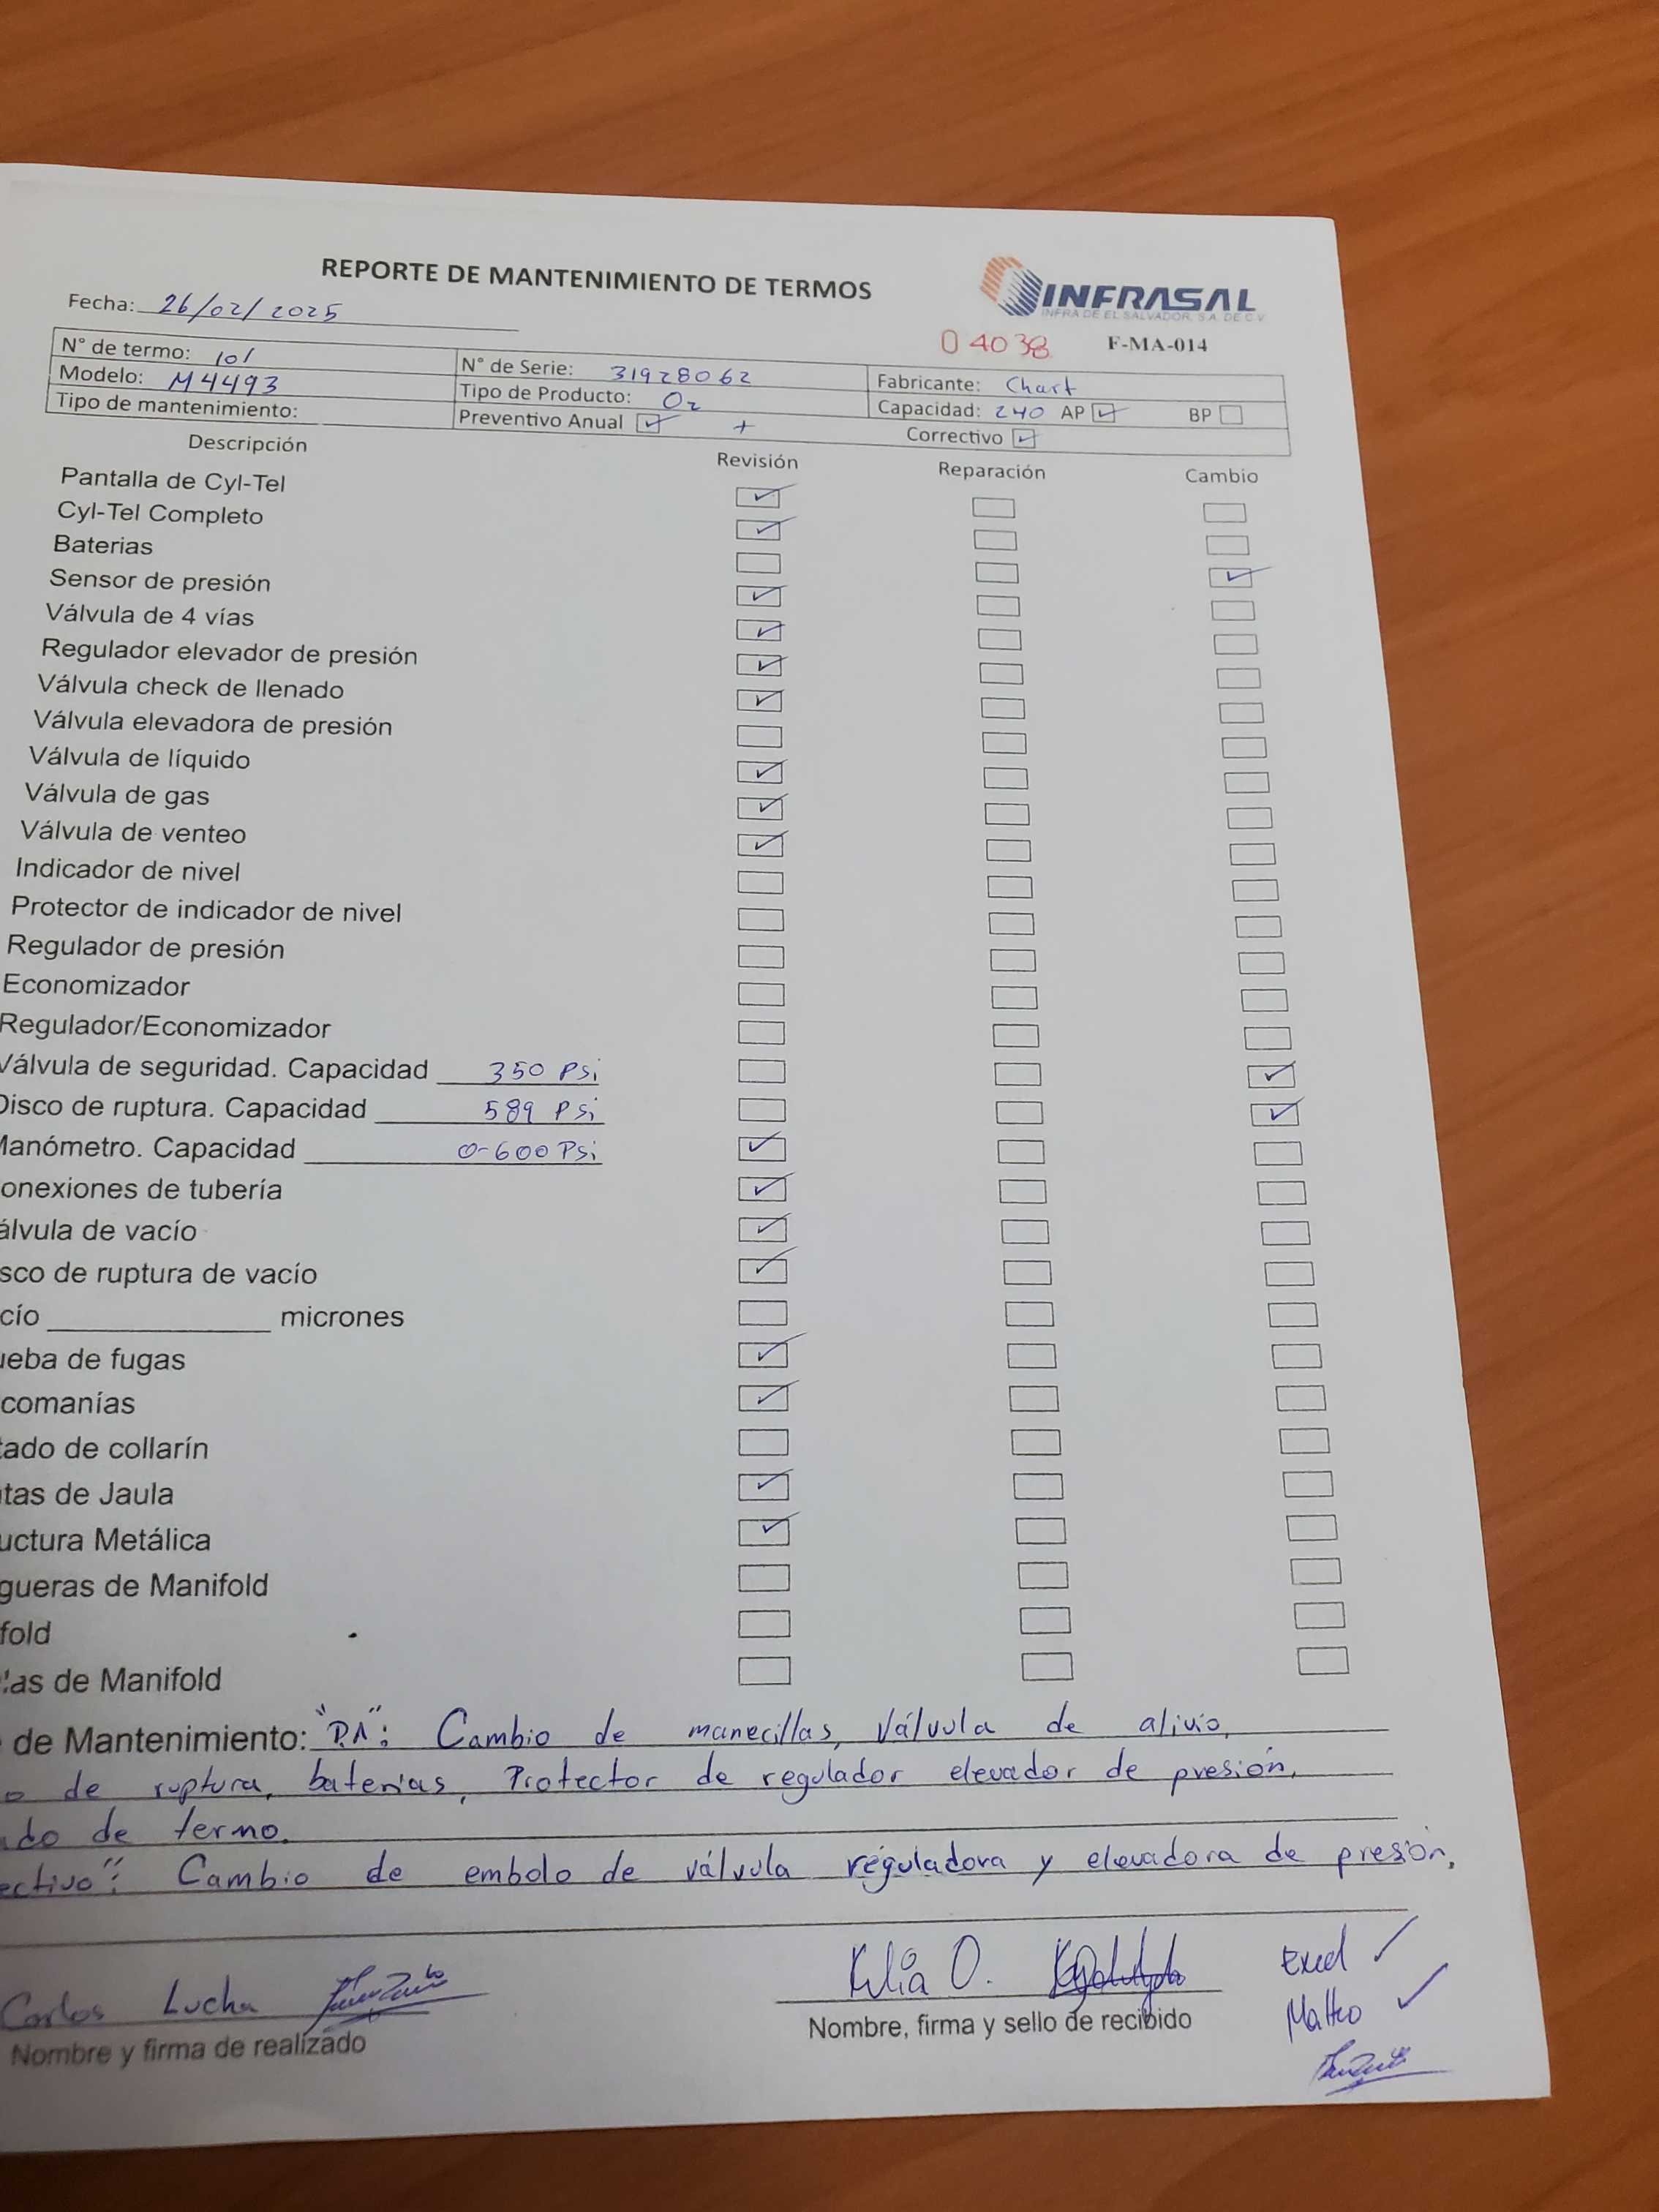 REPORTE DE MANTENIMIENTO DE TERMOS
INFRASAL
INFRA DE EL SALVADOR, S.A. DE C.V.
Fecha: 26/02/2025
04038 F-MA-014
N° de termo: 101 N° de Serie: 31928062 Fabricante: Chart
Modelo: M4493 Tipo de Producto: O2 Capacidad: 240 AP ☑ BP ☐
Tipo de mantenimiento: Preventivo Anual ☑ + Correctivo ☑
Descripción Revisión Reparación Cambio
Pantalla de Cyl-Tel ☑ ☐ ☐
Cyl-Tel Completo ☑ ☐ ☐
Baterias ☐ ☐ ☑
Sensor de presión ☑ ☐ ☐
Válvula de 4 vías ☑ ☐ ☐
Regulador elevador de presión ☑ ☐ ☐
Válvula check de llenado ☑ ☐ ☐
Válvula elevadora de presión ☐ ☐ ☐
Válvula de líquido ☑ ☐ ☐
Válvula de gas ☑ ☐ ☐
Válvula de venteo ☑ ☐ ☐
Indicador de nivel ☐ ☐ ☐
Protector de indicador de nivel ☐ ☐ ☐
Regulador de presión ☐ ☐ ☐
Economizador ☐ ☐ ☐
Regulador/Economizador ☐ ☐ ☐
Válvula de seguridad. Capacidad 350 Psi ☐ ☐ ☑
Disco de ruptura. Capacidad 589 Psi ☐ ☐ ☑
Manómetro. Capacidad 0-600 Psi ☑ ☐ ☐
onexiones de tubería ☑ ☐ ☐
álvula de vacío ☑ ☐ ☐
sco de ruptura de vacío ☑ ☐ ☐
cío ____ micrones ☐ ☐ ☐
ueba de fugas ☑ ☐ ☐
comanías ☑ ☐ ☐
tado de collarín ☐ ☐ ☐
tas de Jaula ☑ ☐ ☐
uctura Metálica ☑ ☐ ☐
gueras de Manifold ☐ ☐ ☐
fold ☐ ☐ ☐
las de Manifold ☐ ☐ ☐
de Mantenimiento: "P.A": Cambio de manecillas, Válvula de alivio,
o de ruptura, baterias, Protector de regulador elevador de presión,
ado de termo.
ectivo": Cambio de embolo de válvula reguladora y elevadora de presión.
Carlos Lucha
Nombre y firma de realizado
O.
Nombre, firma y sello de recibido
Excel ✓
✓